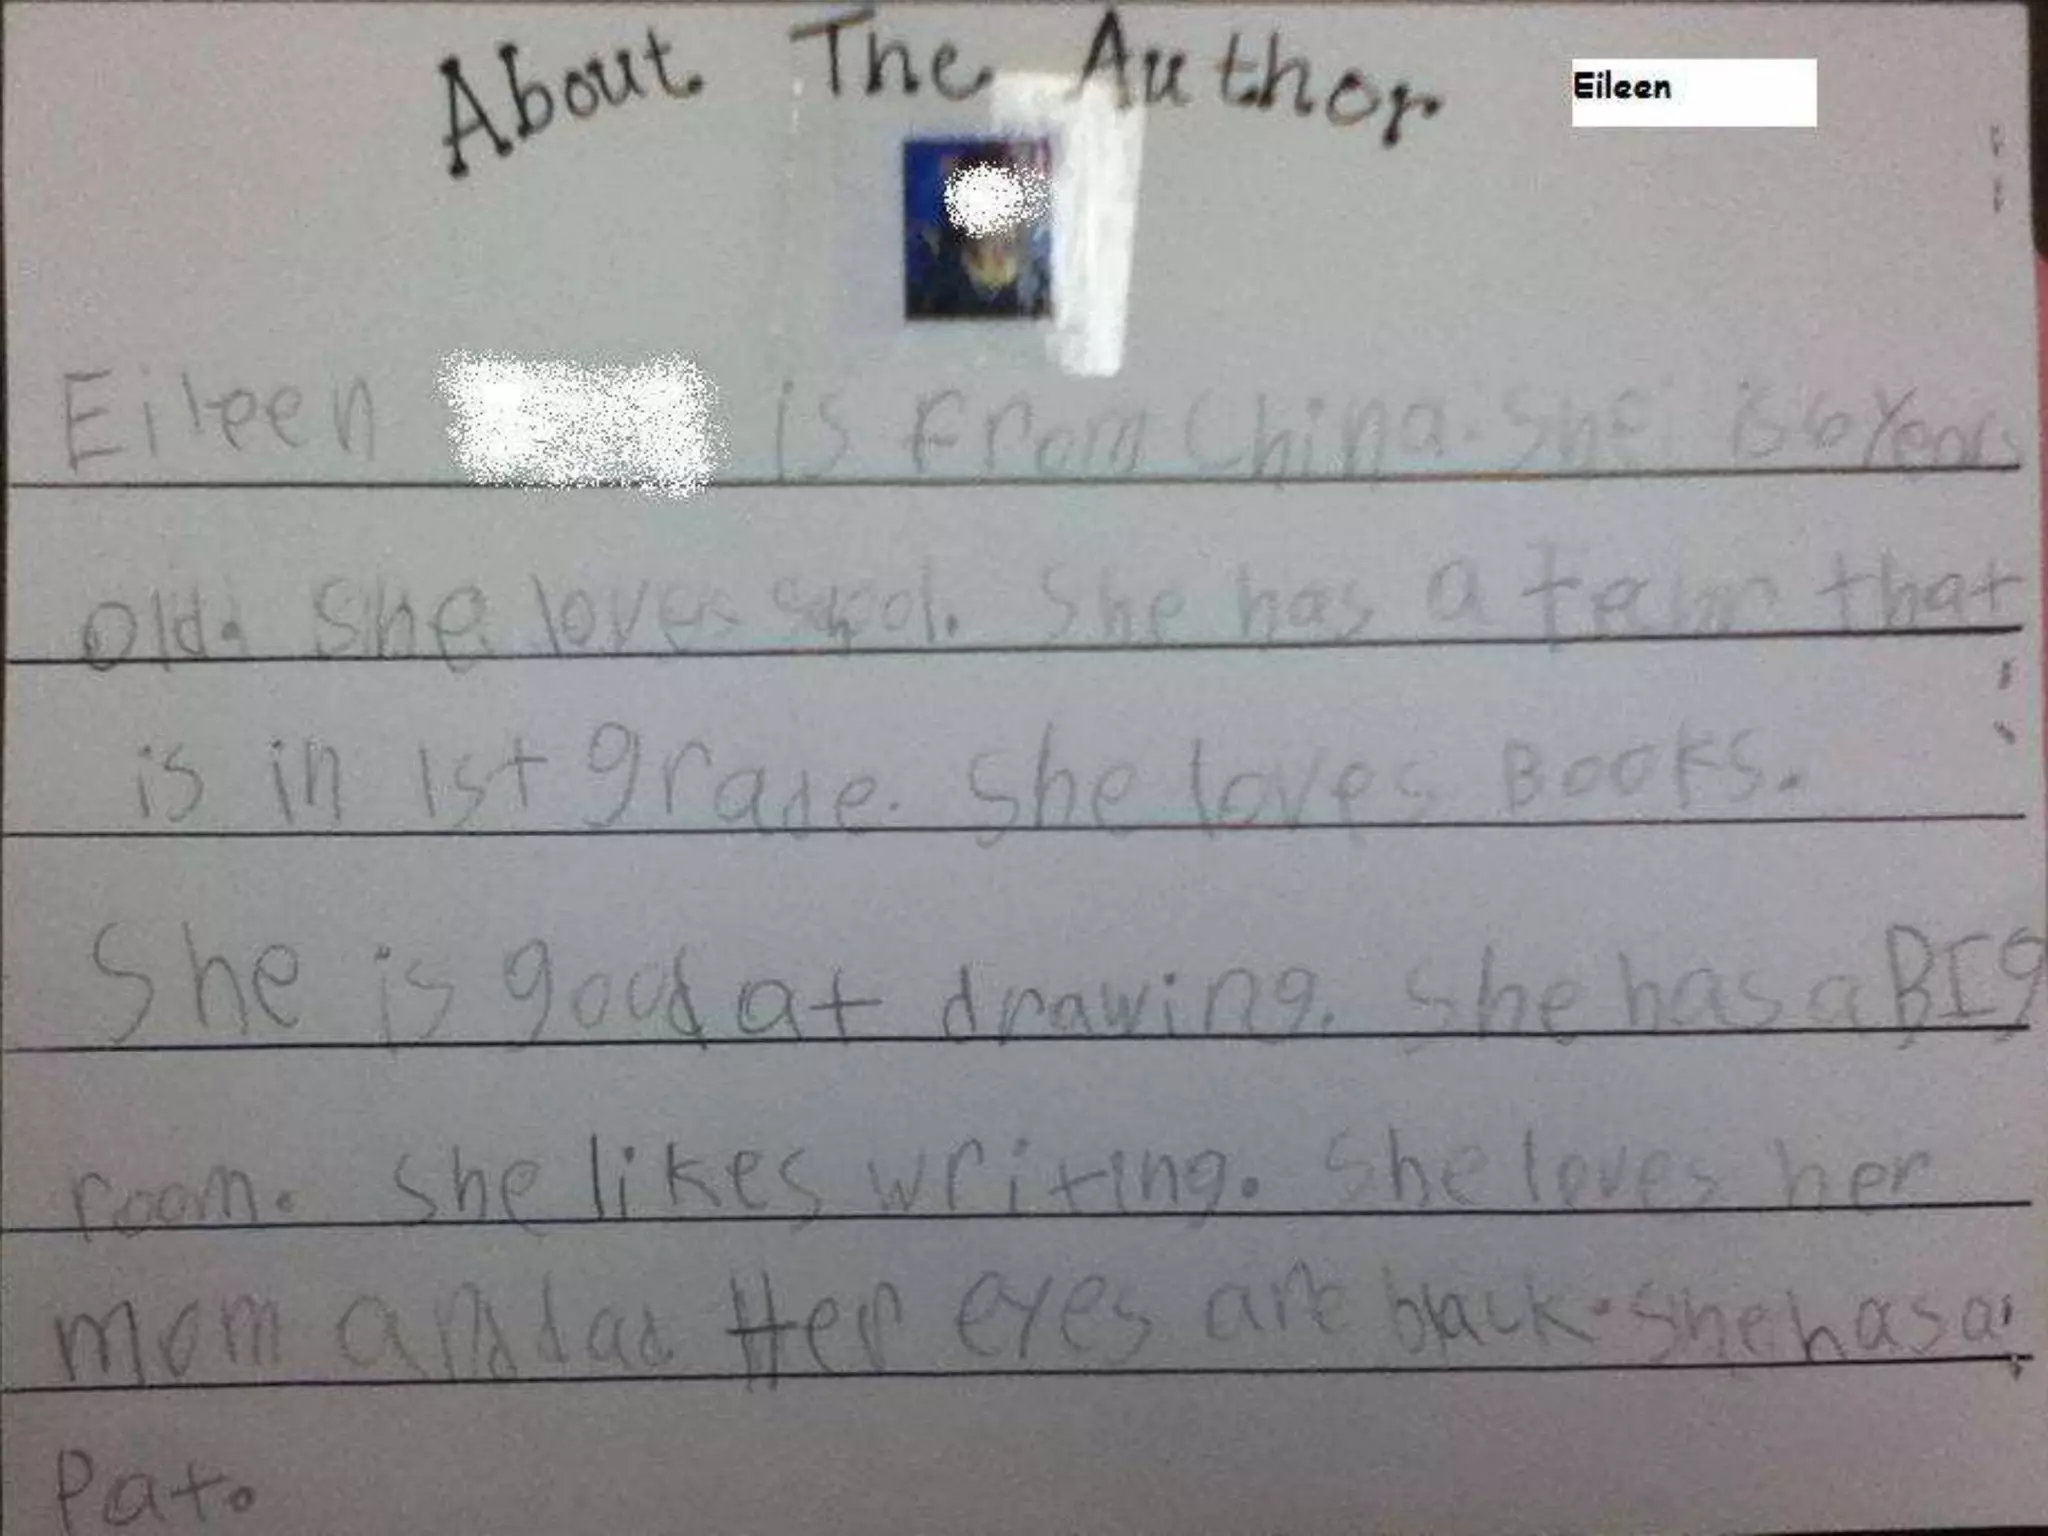 About The Author
Eileen
Eileen is From China. She is 6 Years
old. She loves scool. She has a that
is in 1st grade. She loves BOOKS.
She is good at drawing. She has a BIg
room. She likes writing. She loves her
mom and dad Her eyes are black. She has a
Pat.